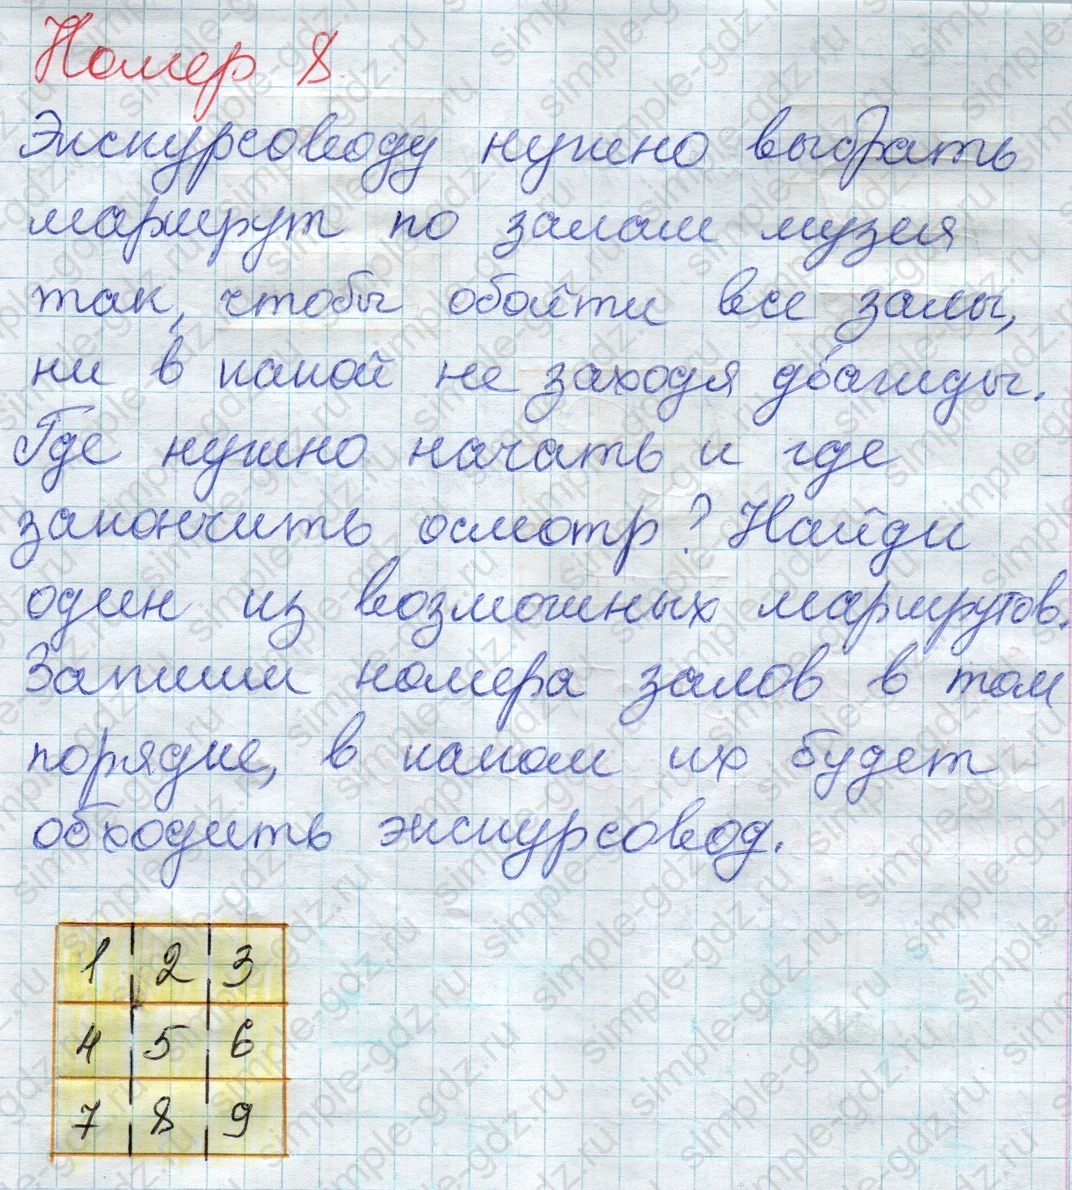 Номер 8.
Экскурсоводу нужно выбрать
маршрут по залам музея
так, чтобы обойти все залы,
ни в какой не заходя дважды.
Где нужно начать и где
закончить осмотр? Найди
один из возможных маршрутов.
Запиши номера залов в том
порядке, в каком их будет
обходить экскурсовод.
1 2 3
4 5 6
7 8 9
simple-gdz.ru